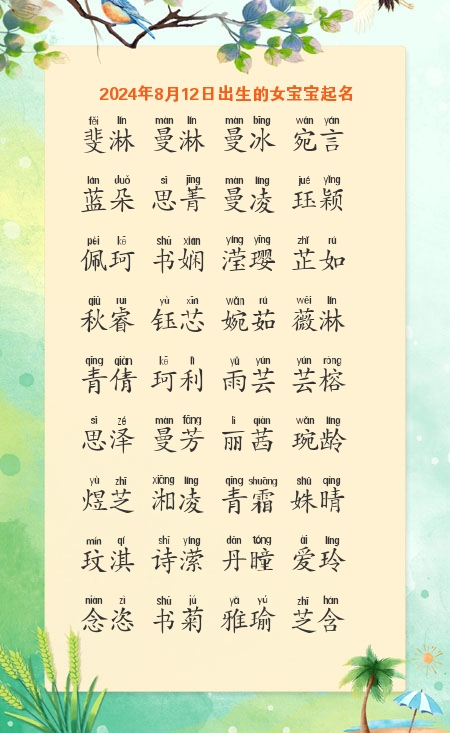 2024年8月12日出生的女宝宝起名
fěi lín màn lín màn bīng wán yán
斐淋 曼淋 曼冰 宛言
lán duǒ sī jīng màn líng jué yǐng
蓝朵 思菁 曼凌 珏颖
pèi kē shū xián yíng yīng zhǐ rú
佩珂 书娴 滢璎 芷如
qiū ruì yù xīn wǎn rú wēi lín
秋睿 钰芯 婉茹 薇淋
qīng qiàn kē lì yǔ yún yún róng
青倩 珂利 雨芸 芸榕
sī zé màn fāng lì qiàn wǎn líng
思泽 曼芳 丽茜 琬龄
yù zhī xiāng líng qīng shuāng shū qíng
煜芝 湘凌 青霜 姝晴
mín qí shī yíng dān tóng ài líng
玟淇 诗潆 丹瞳 爱玲
niàn zī shū jú yǎ yú zhī hán
念恣 书菊 雅瑜 芝含